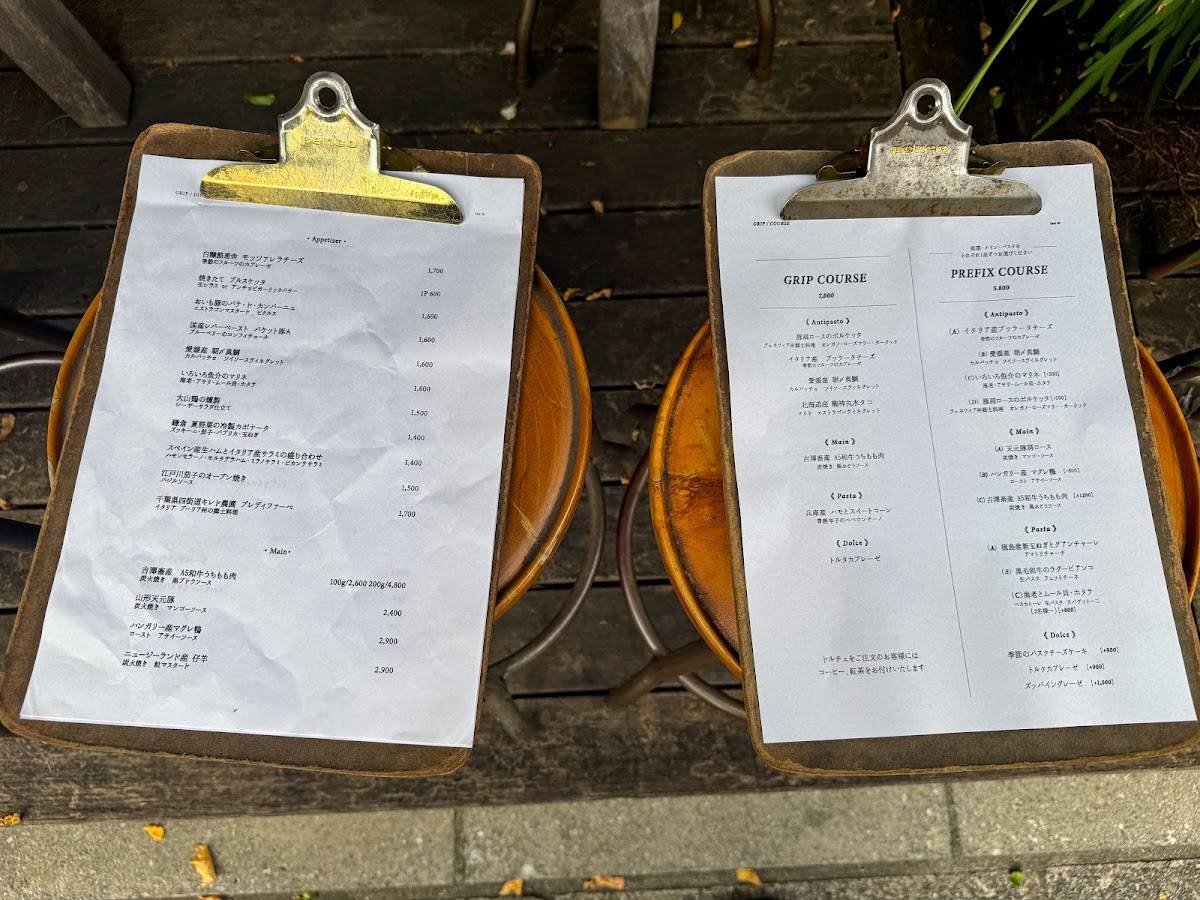 penco
GRIP / DI
・Appetizer・
白糠酪恵舎 モッツァレラチーズ 1,700
季節のフルーツのカプレーゼ
焼きたて ブルスケッタ 1P 600
生シラス or アンチョビガーリックバター
おいも豚のパテ・ド・カンパーニュ 1,600
エストラゴンマスタード ピクルス
国産レバーペースト バケット添え 1,600
ブルーベリーのコンフィチュール
愛媛産 朝〆真鯛 1,600
カルパッチョ ソイソースヴィネグレット
いろいろ魚介のマリネ 1,600
海老・アサリ・ムール貝・ホタテ
大山鶏の燻製 1,500
シーザーサラダ仕立て
鎌倉 夏野菜の冷製カポナータ 1,400
ズッキーニ・茄子・パプリカ・玉ねぎ
スペイン産生ハムとイタリア産サラミの盛り合わせ 1,400
ハモンセラーノ・モルタデラハム・ミラノサラミ・ピカンテサラミ
江戸川茄子のオーブン焼き 1,500
バジルソース
千葉県四街道キレド農園 プレディファーベ 1,700
イタリア プーリア州の郷土料理
・Main・
吉澤畜産 A5和牛うちもも肉 100g/2,600 200g/4,800
炭火焼き 黒ブドウソース
山形天元豚 2,400
炭火焼き マンゴーソース
ハンガリー産マグレ鴨 2,900
ロースト アサイーソース
ニュージーランド産 仔羊 2,900
炭火焼き 粒マスタード
penco
GRIP / COURSE
GRIP COURSE
7,000
《 Antipasto 》
豚肩ロースのポルケッタ
ヴェネツィア州郷土料理 オレガノ・ローズマリー・ガーリック
イタリア産 ブッラータチーズ
季節のフルーツのカプレーゼ
愛媛産 朝〆真鯛
カルパッチョ ソイソースヴィネグレット
北海道産 龍神丸水タコ
《 Main 》
吉澤畜産 A5和牛うちもも肉
炭火焼き 黒ぶどうソース
《 Pasta 》
兵庫産 ハモとスイートコーン
青唐辛子のペペロンチーノ
《 Dolce 》
トルタカプレーゼ
ドルチェをご注文のお客様には
コーヒー、紅茶をお付けいたします
前菜・メイン・パスタを
それぞれ1品ずつお選びください
PREFIX COURSE
5,800
《 Antipasto 》
(A) イタリア産ブッラータチーズ
季節のフルーツのカプレーゼ
(B) 愛媛産 朝〆真鯛
カルパッチョ ソイソースヴィネグレット
(C) いろいろ魚介のマリネ
海老・アサリ・ムール貝・ホタテ
(D) 豚肩ロースのポルケッタ
ヴェネツィア州郷土料理 オレガノ・ローズマリー・ガーリック
《 Main 》
(A) 天元豚肩ロース
炭焼き マンゴーソース
(B) ハンガリー産 マグレ鴨
ロースト アサイーソース
(C) 吉澤畜産 A5和牛うちもも肉 [+1200]
炭焼き 黒ぶどうソース
《 Pasta 》
(A) 徳島産新玉ねぎとグアンチャーレ
アマトリチャーナ
(B) 黒毛和牛のラグービアンコ
生パスタ フェットチーネ
(C) 海老とムール貝・ホタテ
ペスカトーレ 生パスタ スパゲットーニ
(2名様〜) [+800]
《 Dolce 》
季節のバスクチーズケーキ [+900]
トルタカプレーゼ [+900]
ズッパイングレーゼ [+1,000]